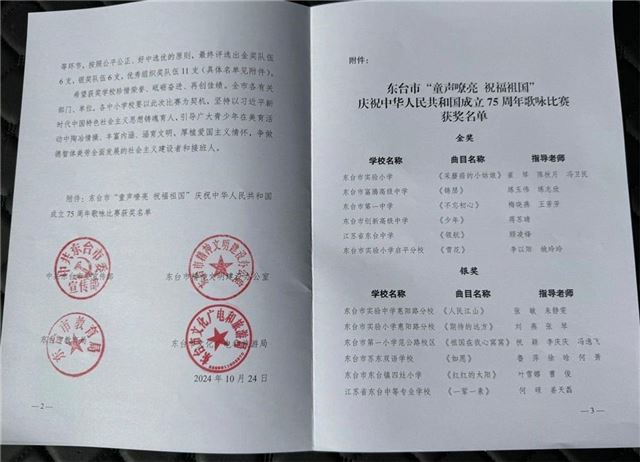 等环节，按照公平公正、好中选优的原则，最终评选出金奖队伍
6支，银奖队伍6支，优秀组织奖队伍11支（具体名单见附件）。
希望获奖学校珍惜荣誉、砥砺奋进、再创佳绩，全市各有关
部门、单位，各中小学校要以此次比赛为契机，坚持以习近平新
时代中国特色社会主义思想铸魂育人，引导广大青少年在美育活
动中陶冶情操、丰富内涵、涵育文明，厚植爱国主义情怀，争做
德智体美劳全面发展的社会主义建设者和接班人。
附件：东台市“童声嘹亮 祝福祖国”庆祝中华人民共和国
成立75周年歌咏比赛获奖名单
中共东台市委宣传部
东台市精神文明建设办公室
东台市教育局
东台市文化广电和旅游局
2024年10月24日
—2—
附件：
东台市“童声嘹亮 祝福祖国”
庆祝中华人民共和国成立75周年歌咏比赛
获奖名单
金奖
学校名称 曲目名称 指导老师
东台市实验小学 《采蘑菇的小姑娘》 崔琴 陈秋月 冯卫民
东台市富腾高级中学 《锦瑟》 练玉伟 练志欣
东台市第一中学 《不忘初心》 梅晓燕 王芳芳
东台市创新高级中学 《少年》 蒋苏靖
江苏省东台中学 《领航》 顾凌锋
东台市实验小学启平分校 《雪花》 李以阳 姚玲玲
银奖
学校名称 曲目名称 指导老师
东台市实验中学惠阳路分校 《人民江山》 张敏 朱静雯
东台市实验小学惠阳路分校 《期待的远方》 刘燕 张琴
东台市第一小学范公路校区 《祖国在我心窝窝》 杭颖 李庆庆 冯逸飞
东台市苏东双语学校 《如愿》 鲁萍 徐晗 何勇
东台市东台镇四灶小学 《红红的太阳》 叶雪娜 曹俊
江苏省东台中等专业学校 《一荤一素》 何硕 姜天磊
—3—